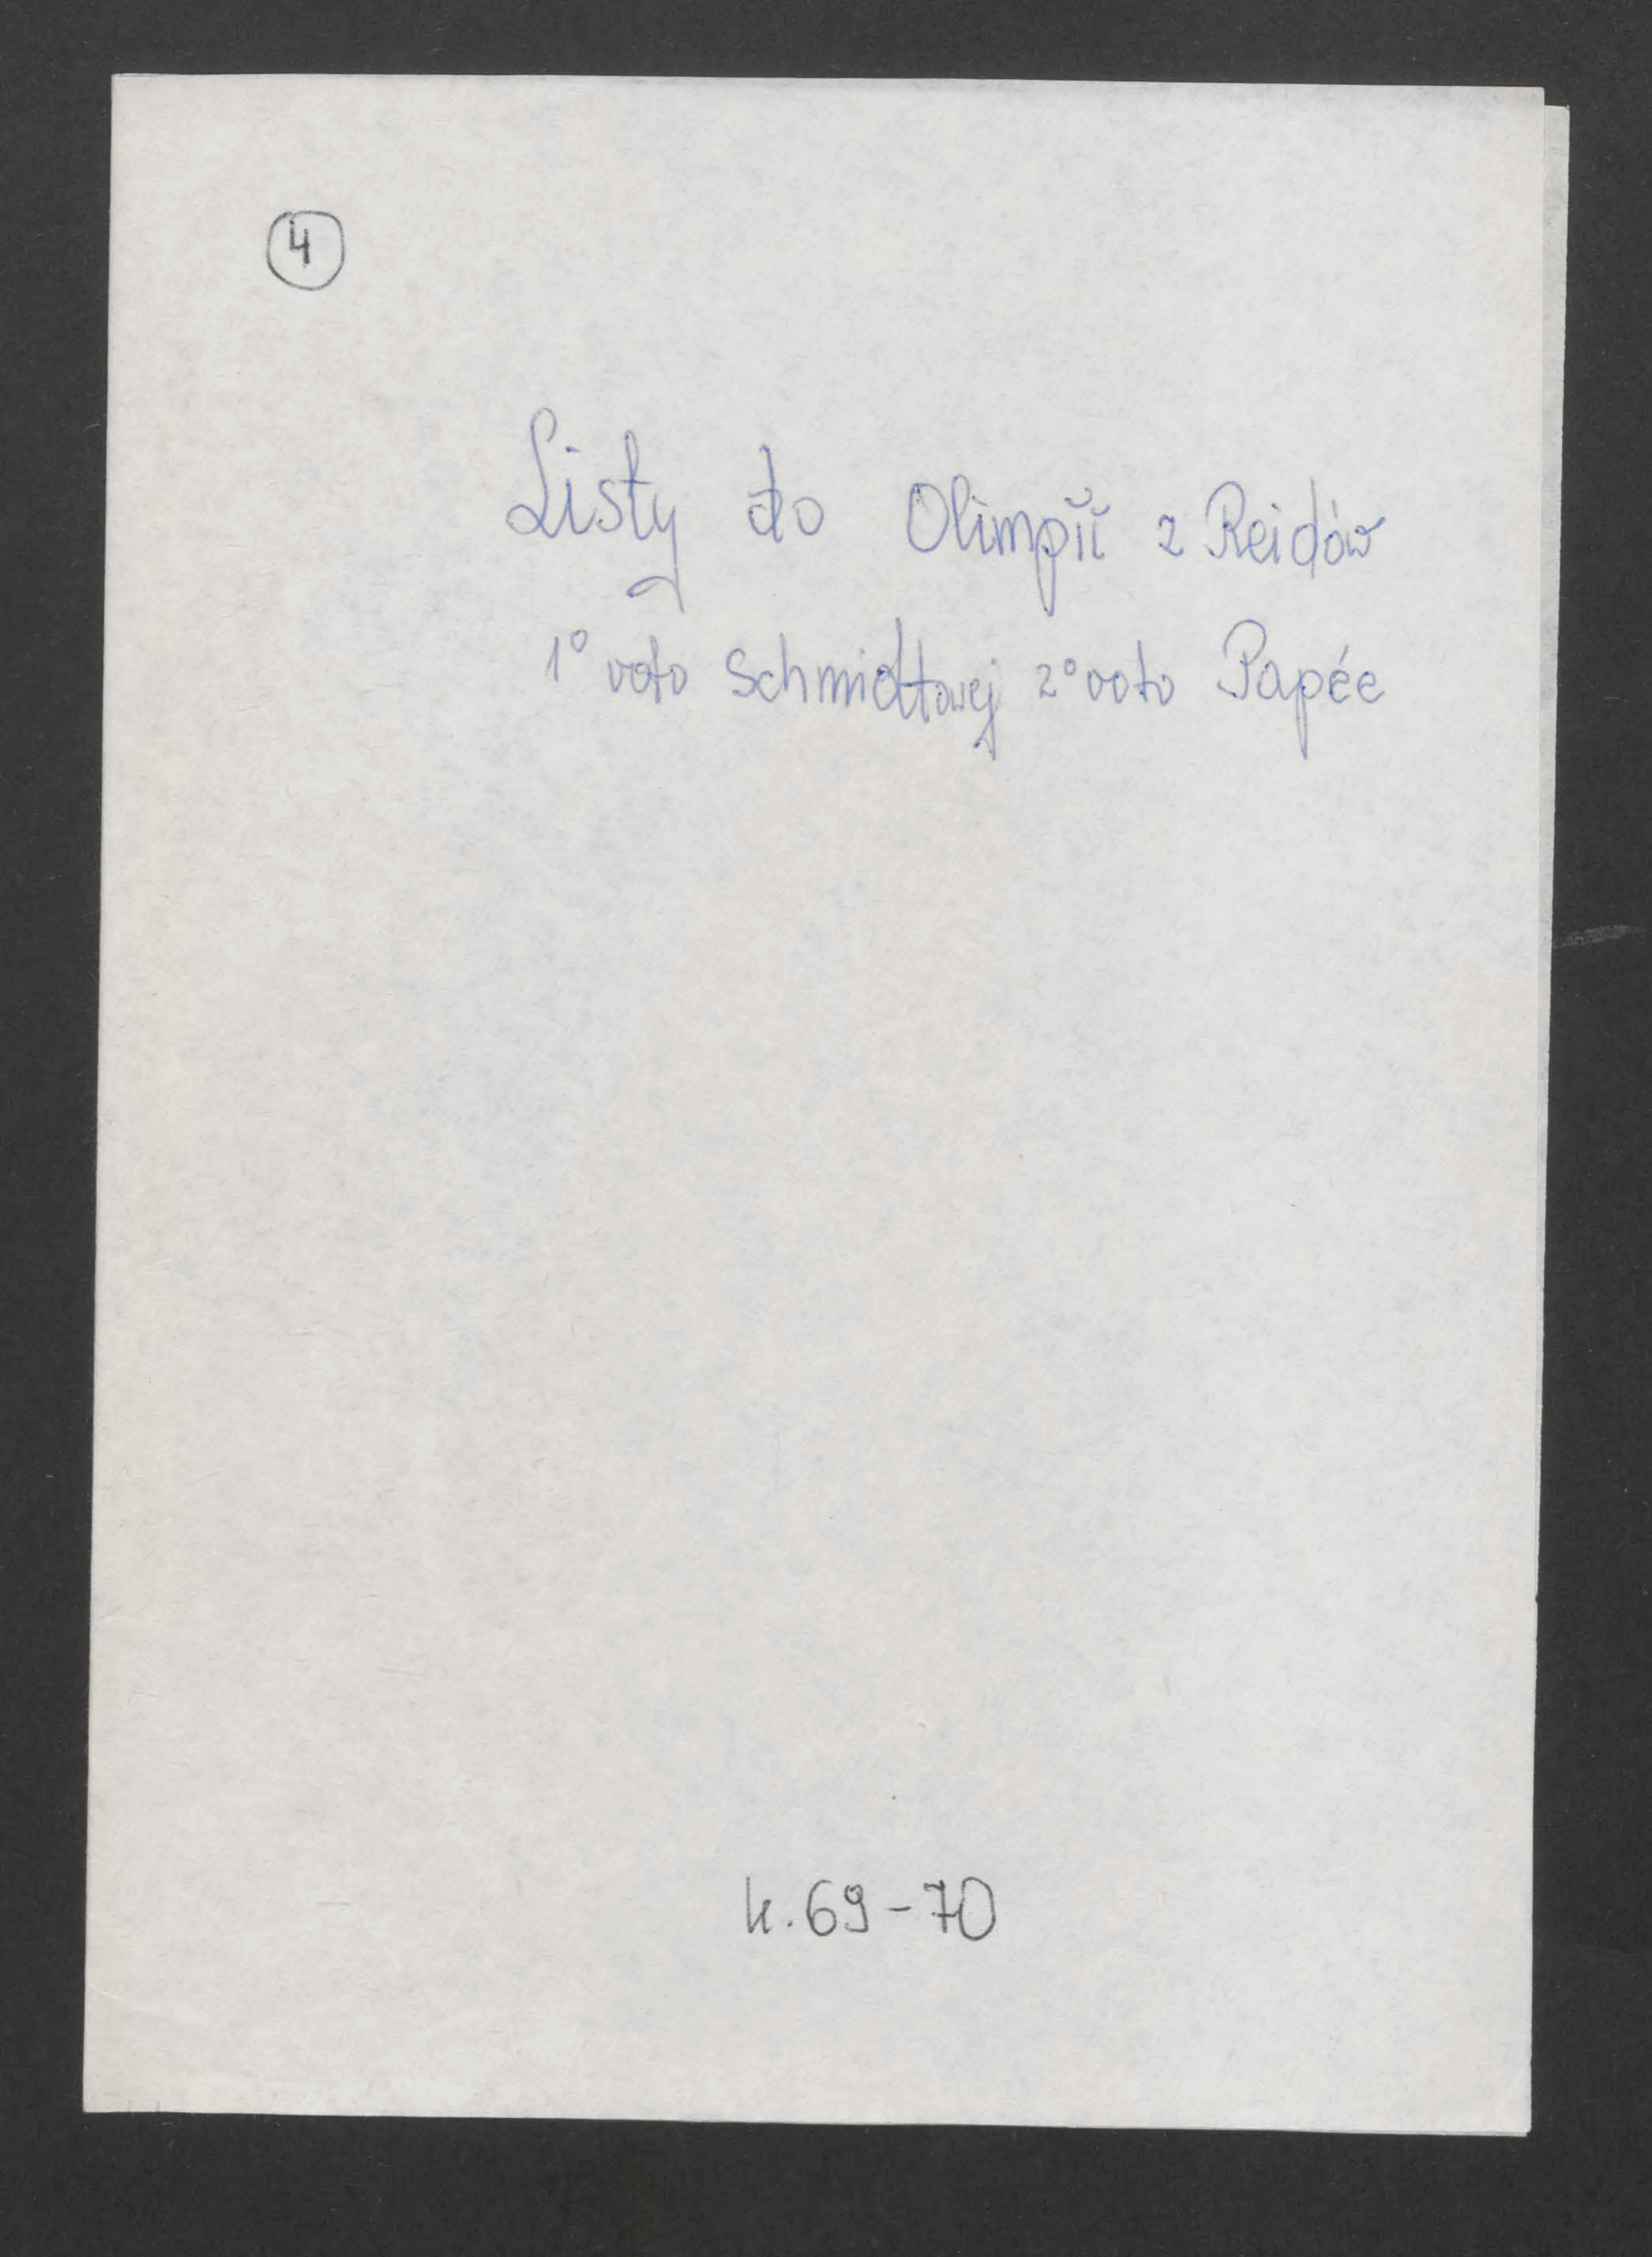 4
Listy do Olimpii z Reidów
1° voto Schmidtowej 2° voto Papée
k. 69-70